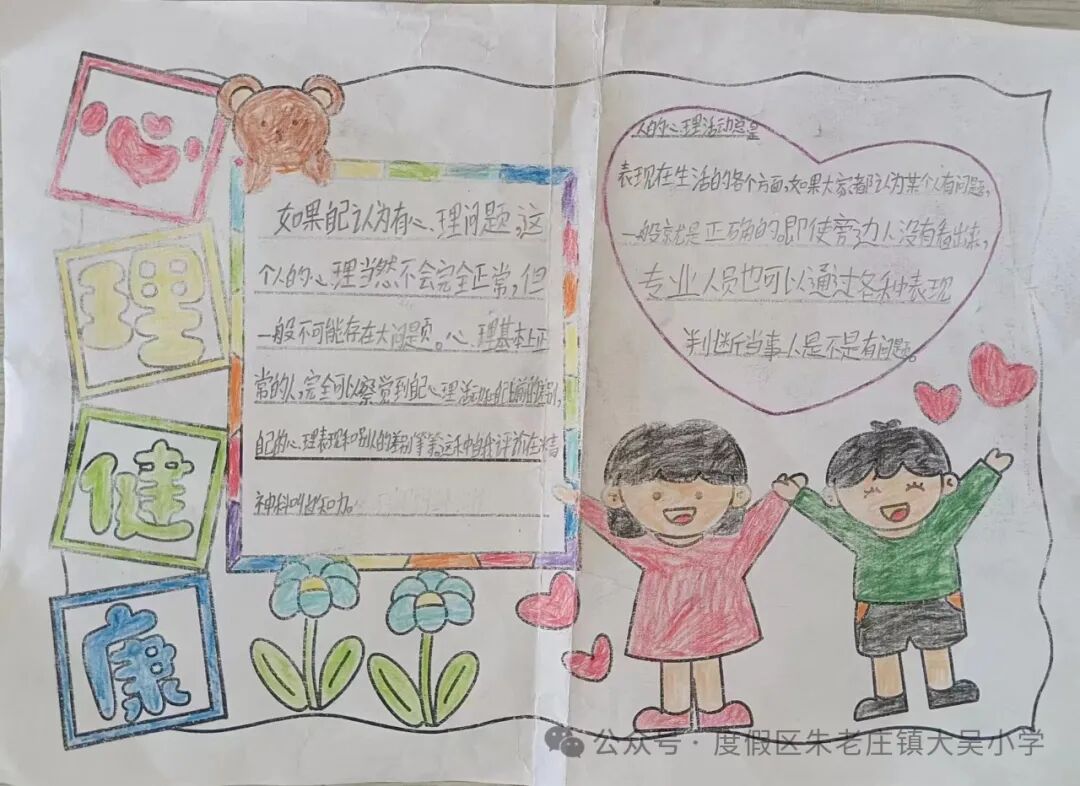 心
理
健
康
如果自己认为有心理问题,这
个人的心理当然不会完全正常,但
一般不可能存在大问题。心理基本上正
常的人,完全可以察觉到自己心理活动和自己以前的差别,
自己的心理表现和别人的差别等等。这种自我评价在精
神科叫自知力。
人的心理活动总是
表现在生活的各个方面,如果大家都认为某个人有问题,
一般就是正确的。即使旁边人没有看出来,
专业人员也可以通过各种表现
判断当事人是不是有问题。
公众号·度假区朱老庄镇大吴小学